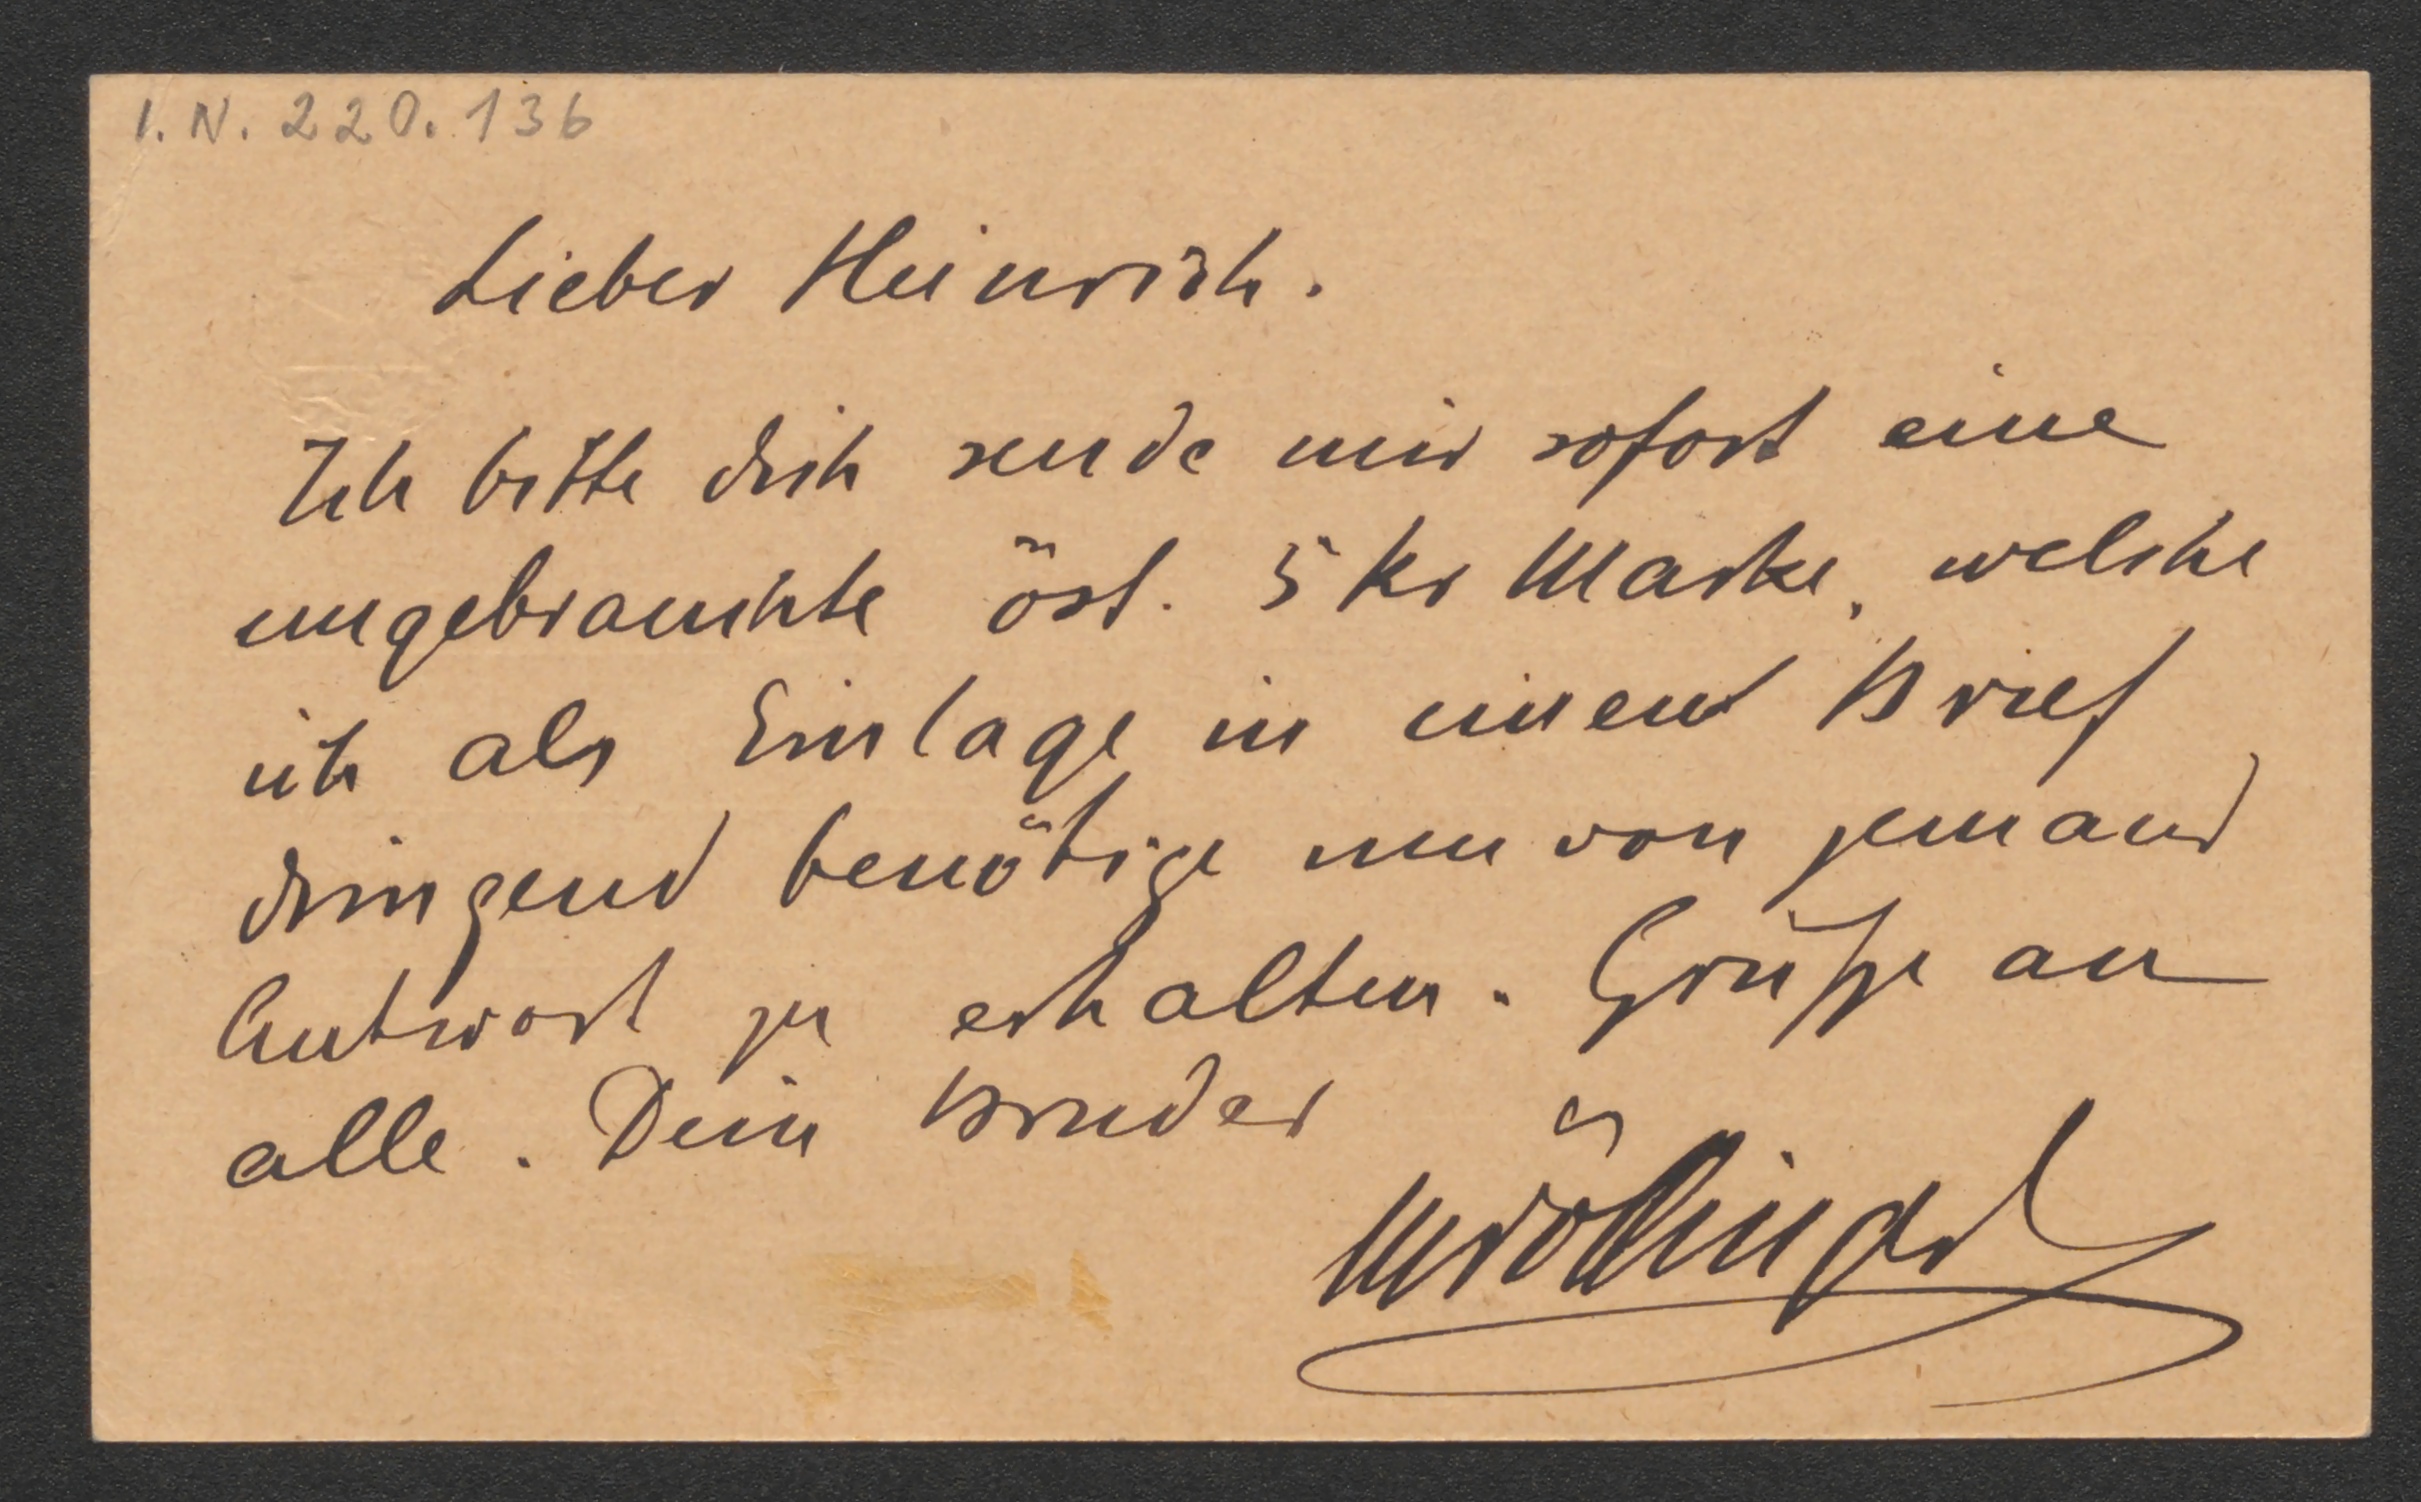 I. N. 220.136
Lieber Heinrich.
Ich bitte dich sende mir sofort eine
ungebrauchte öst. 5 kr Marke, welche
ich als Einlage in einen Brief
dringend benötige um von jemand
Antwort zu erhalten. Grüße an
alle. Dein Bruder